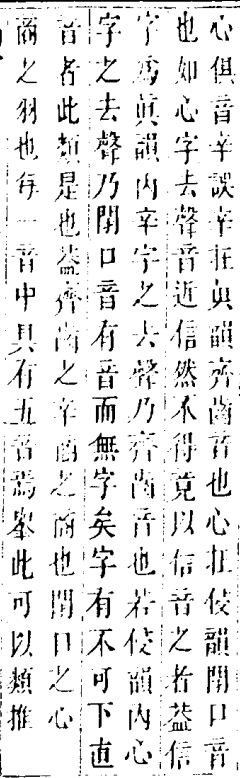 心俱音辛誤辛在真韻齊齒音也心在侵韻開口音
也如心字去聲音近信然不得竟以信音之者蓋信
字爲真韻內辛字之去聲乃齊齒音也若侵韻內心
字之去聲乃開口音有音而無字矣字有不可下直
音者此類是也蓋齊齒之辛商之商也開口之心
商之羽也每一音中具有五音焉舉此可以類推